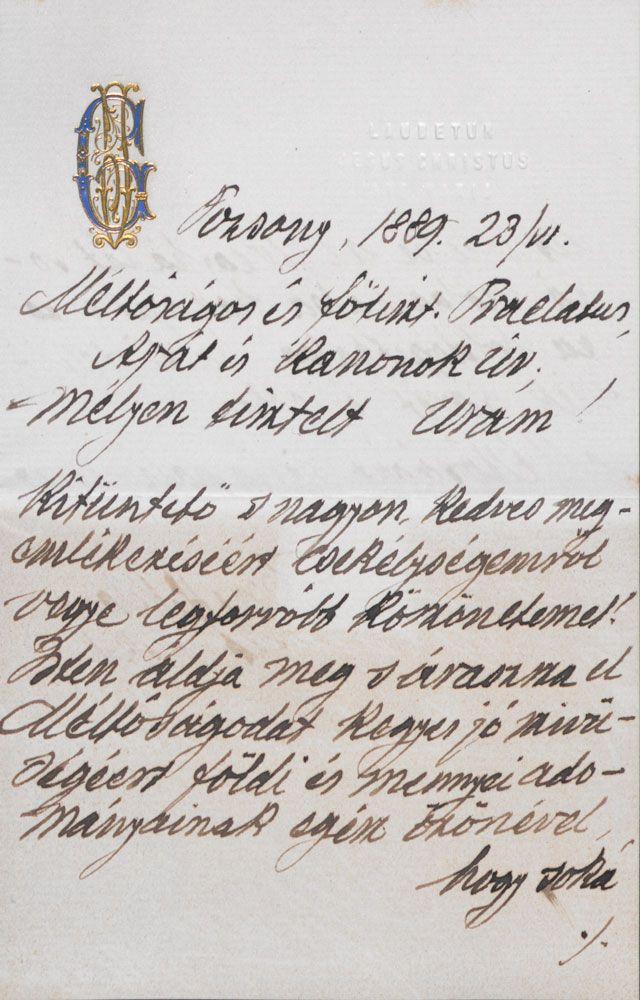 LAUDETUR
JESUS CHRISTUS
Pozsony, 1889. 23/VI.
Méltóságos és főtiszt. Praelatus,
Apát és Kanonok Úr,
Mélyen tisztelt Uram!
Kitüntető s nagyon kedves meg-
emlékezéséért csekélységemről
vegye legforróbb köszönetemet!
Isten áldja meg s árassza el
Méltóságodat kegyes jó szivü-
ségéért földi és mennyei ado-
mányainak egész özönével,
hogy soká
./.